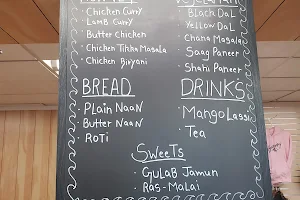 Chicken Curry
Lamb Curry
Butter Chicken
Chicken Tikka Masala
Chicken Biryani
Vegetarian
Black Dal
Yellow Dal
Chana Masala
Saag Paneer
Shahi Paneer
BREAD
Plain Naan
Butter Naan
Roti
DRINKS
Mango Lassi
Tea
Sweets
Gulab Jamun
Ras-Malai